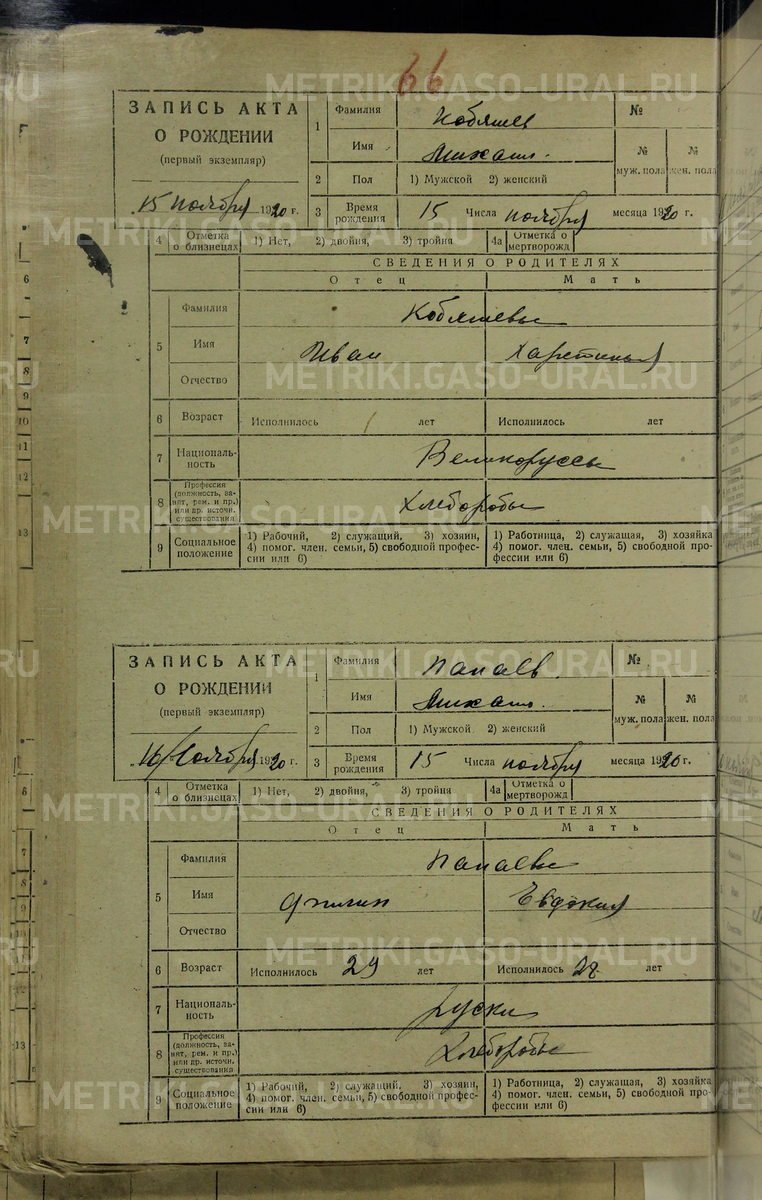 66
ЗАПИСЬ АКТА
О РОЖДЕНИИ
(первый экземпляр)
15 ноября 1920 г.
1 Фамилия Кобяшев №
Имя Михаил.
№ муж. пола № жен. пола
2 Пол 1) Мужской 2) женский
3 Время рождения 15 Числа ноября месяца 1920 г.
4 Отметка о близнецах 1) Нет, 2) двойня, 3) тройня 4а Отметка о мертворожд
СВЕДЕНИЯ О РОДИТЕЛЯХ
Отец Мать
5 Фамилия Кобяшевы
Имя Иван Харетинья
Отчество
6 Возраст Исполнилось лет Исполнилось лет
7 Националь-
ность Великоруссы
8 Профессия
(должность, за-
нят, рем. и пр.)
или др. источн.
существования Хлеборобы
9 Социальное
положение
1) Рабочий, 2) служащий, 3) хозяин,
4) помог. член. семьи, 5) свободной профес-
сии или 6)
1) Работница, 2) служащая, 3) хозяйка
4) помог. член. семьи, 5) свободной про-
фессии или 6)
ЗАПИСЬ АКТА
О РОЖДЕНИИ
(первый экземпляр)
16 Ноября 1920 г.
1 Фамилия Папаев №
Имя Михаил.
№ муж. пола № жен. пола
2 Пол 1) Мужской 2) женский
3 Время рождения 15 Числа ноября месяца 1920 г.
4 Отметка о близнецах 1) Нет, 2) двойня, 3) тройня 4а Отметка о мертворожд
СВЕДЕНИЯ О РОДИТЕЛЯХ
Отец Мать
5 Фамилия Папаевы
Имя Филип Евдокия
Отчество
6 Возраст Исполнилось 29 лет Исполнилось 28 лет
7 Националь-
ность руски
8 Профессия
(должность, за-
нят, рем. и пр.)
или др. источн.
существования Хлеборобы
9 Социальное
положение
1) Рабочий, 2) служащий, 3) хозяин,
4) помог. член. семьи, 5) свободной профес-
сии или 6)
1) Работница, 2) служащая, 3) хозяйка
4) помог. член. семьи, 5) свободной про-
фессии или 6)
METRIKI.GASO-URAL.RU